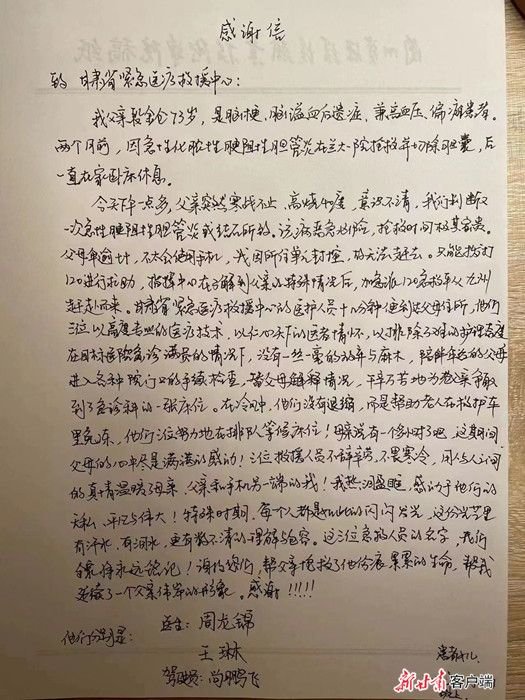 感谢信
致 甘肃省紧急医疗救援中心：
我父亲 73岁，是脑梗、脑溢血后遗症，兼高血压、偏瘫患者。
两个月前，因急性化脓性梗阻性胆管炎在兰大一院抢救并切除胆囊，后
一直在家卧床休息。
今天下午一点多，父亲突然寒战不止，高烧40度，意识不清，我们判断又
一次急性梗阻性胆管炎或结石所致。该病患危险，抢救时间极其宝贵。
父母年逾，不太会使用手机，我因所住单元封控，故无法赶去。只能拨打
120进行求助，指挥中心在了解到父亲的特殊情况后，加急派120急救车从九州
赶赴而来。甘肃省紧急医疗救援中心的医护人员十几分钟便到达父母住所，他们
三位以高度专业的医疗技术，以仁心天下的医者情怀，以排除万难的护理态度
在目标医院急诊满员的情况下，没有一丝一毫的 与麻木，陪伴年迈的父母
进入各种院门口的手续检查，替父母解释情况，千辛万苦地为老父亲争取
到了急诊科的一张床位。在冷风中，他们没有退缩，而是帮助老人在救护车
里免冻，他们三位努力地在排队等候床位！母亲说有一个多小时了吧，这期间
父母的心中尽是满满的感动！三位救援人员不辞辛劳，不畏寒冷，用人与人之间
的真情温暖了母亲、父亲和手机另一端的我！我热泪盈眶，感动于他们的
无私、平凡与伟大！特殊时期，每个人都是如此的闪闪发光，这份光芒里
有汗水，有泪水，更有数不清的理解与包容。这三位急救人员的名字，我们
全家将永远铭记！谢谢你们，帮父亲抢救了他伤痕累累的生命，帮我
延续了一个父亲伟岸的形象。感谢！！！！！
他们分别是：
医生：周龙锦
王琳
驾驶员：尚鹏飞
患者女儿
新甘肃客户端